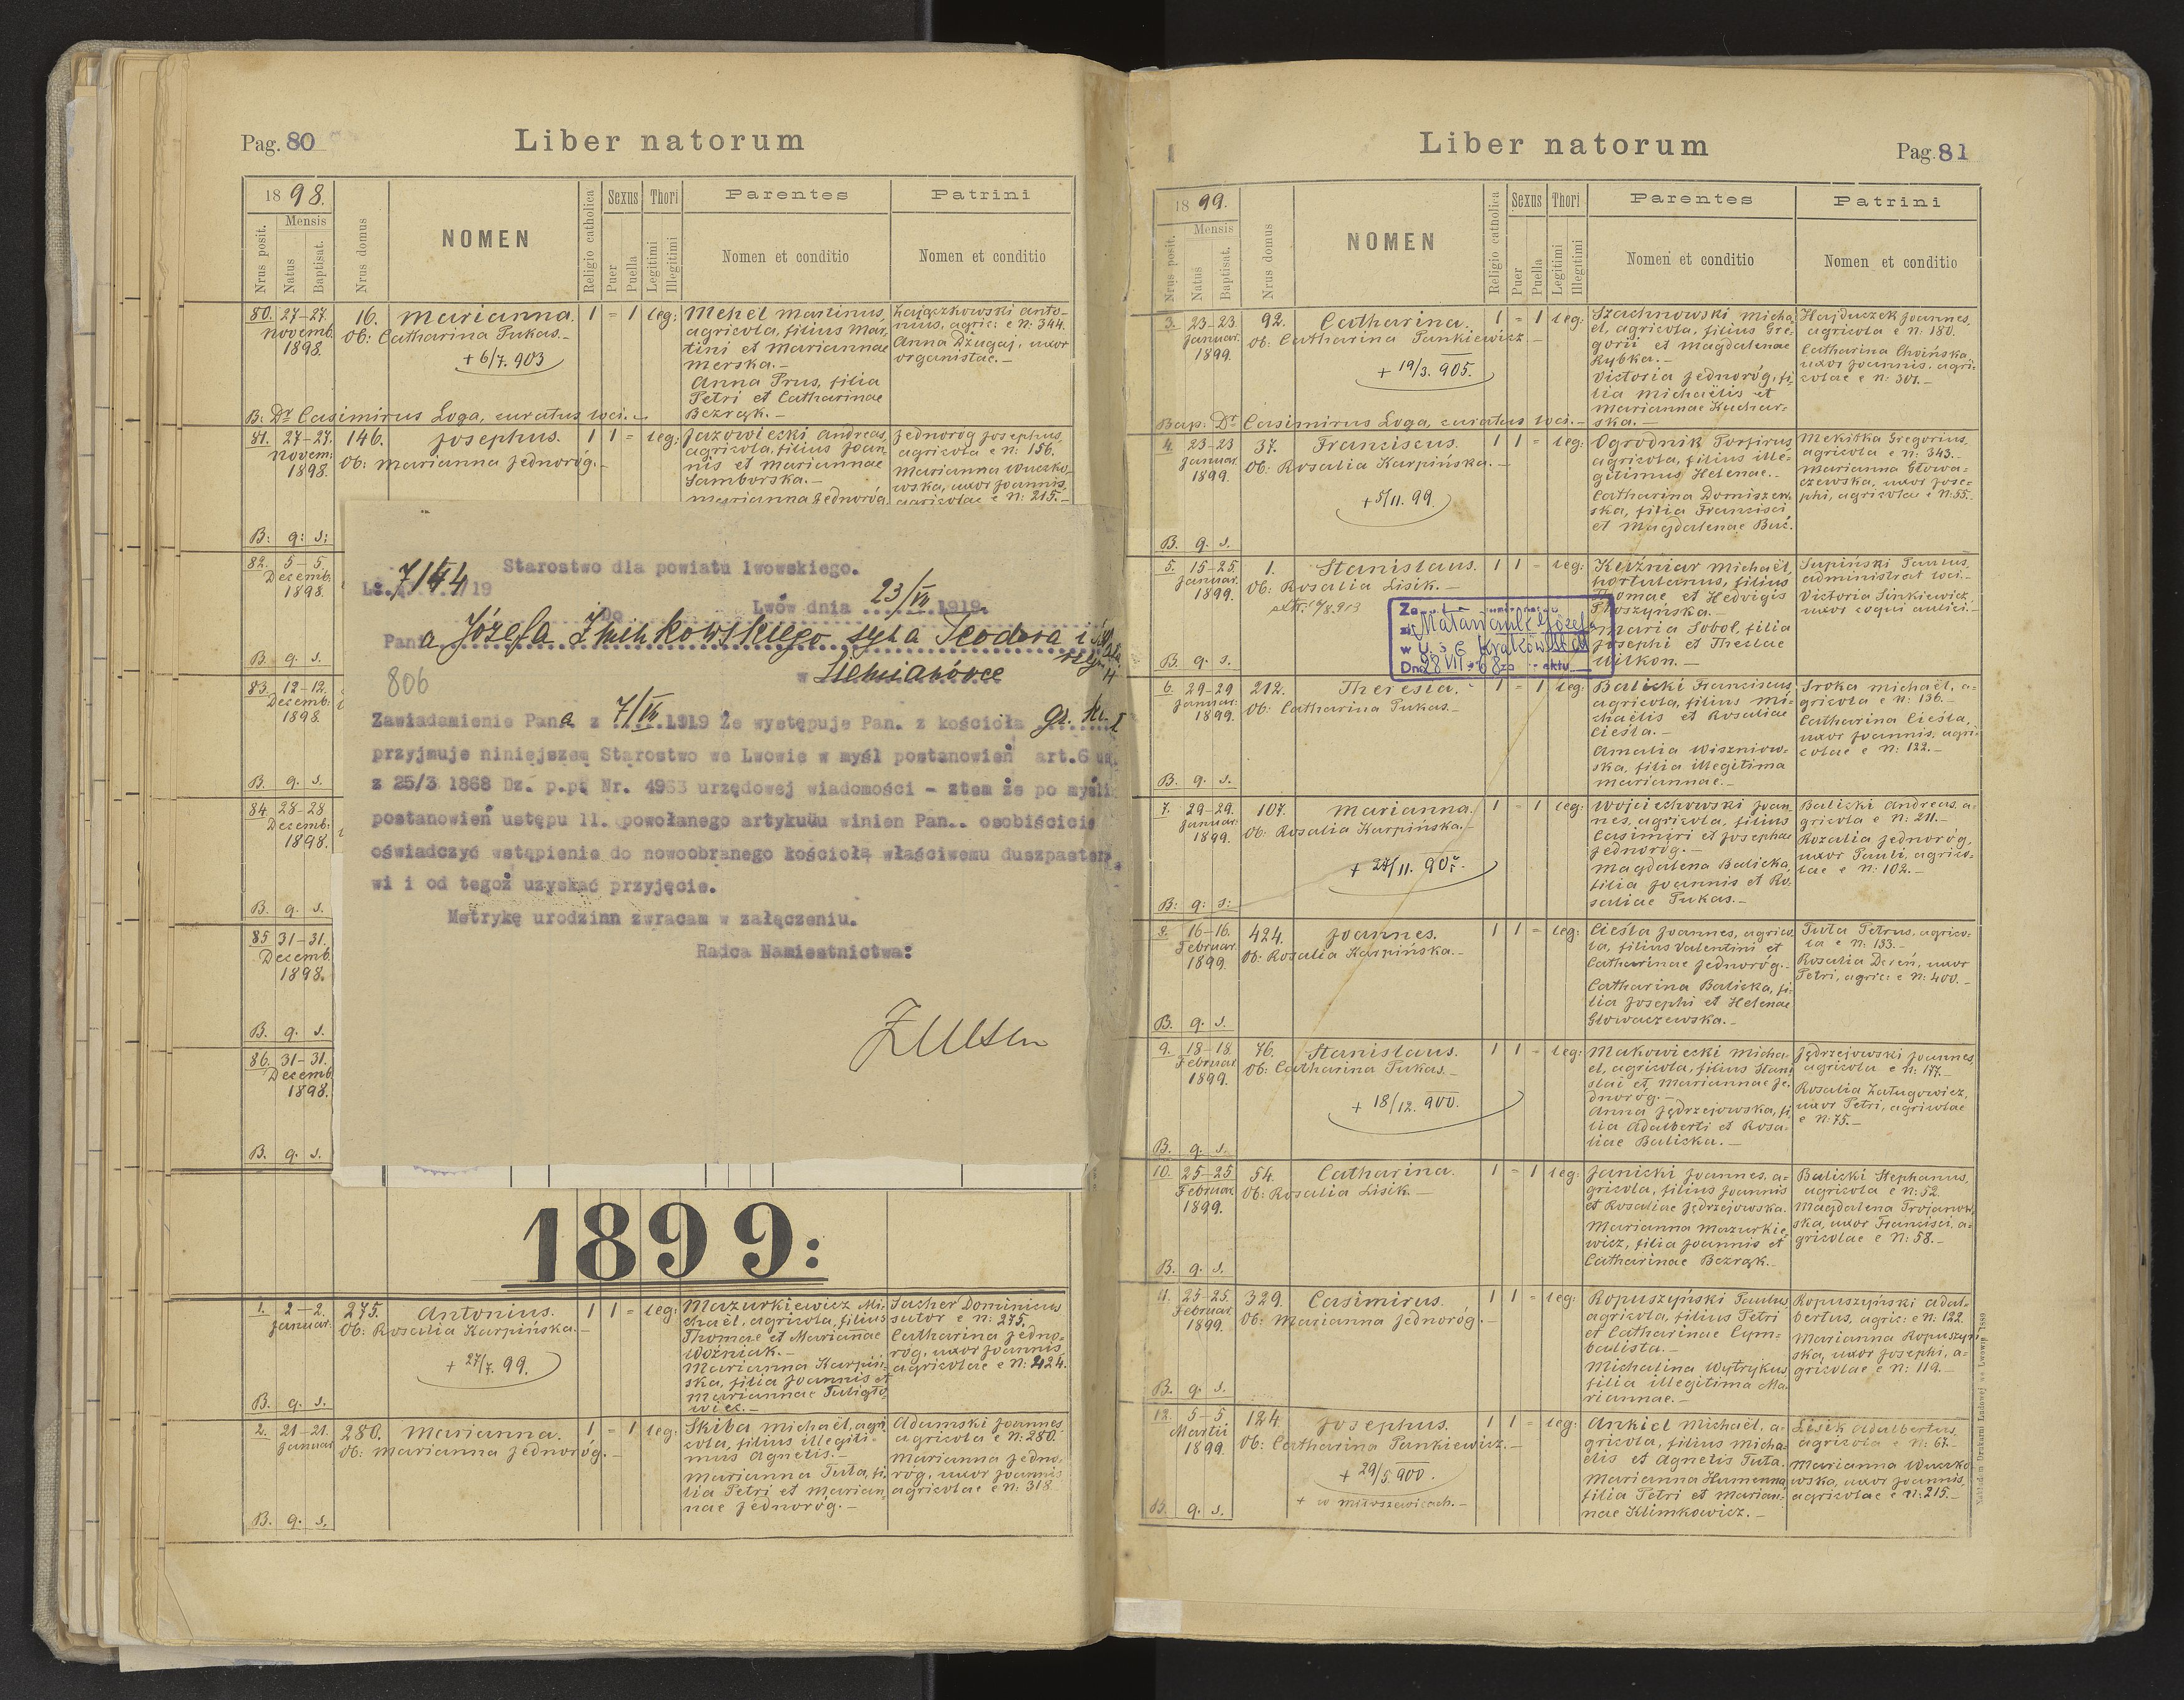 Pag. 80
Liber natorum
1898.
Nrus posit.
Mensis
Natus
Baptisat.
Nrus domus
NOMEN
Religio catholica
Sexus
Puer
Puella
Thori
Legitimi
Illegitimi
Parentes
Nomen et conditio
Patrini
Nomen et conditio
80. 27-27. Novemb. 1898.
16. Marianna. 1 = 1 leg:
Ob: Catharina Pukas.-
+ 6/7. 903
Mehel Martinus,
agricola, filius Mar-
tini et Mariannae
Merska.-
Anna Prus, filia
Petri et Catharinae
Bezrąk.-
Zajączkowski Anto-
nius, agric: e N: 344.
Anna Dżugaj, uxor
organistae.-
B: Dr Casimirus Loga, curatus loci.-
81. 27-27. Novem: 1898.
146. Josephus. 1 1 = leg:
Ob: Marianna Jednoróg.-
Jazowiecki Andreas,
agricola, filius Joan-
nis et Mariannae
Samborska.-
Marianna Jednoróg
Jednoróg Josephus,
agricola e N: 156.
Marianna
wska, uxor Joannis,
agricolae e N: 215.-
B: q: s:
82. 5-5. Decemb. 1898.
B. q. s.
83. 12-12. Decemb. 1898.
B. q. s.
84. 28-28 Decemb: 1898.
B. q. s.
85 31-31. Decemb. 1898.
B. q. s.
86. 31-31. Decemb. 1898.
B. q. s.
Starostwo dla powiatu lwowskiego.
19
Lwów dnia 23/VII 1919.
Do
Pana Józefa syna Teodora i
w
806
Zawiadamienie Pana z 7/VII 1919 Że występuje Pan. z kościoła gr. k.
przyjmuje niniejszem Starostwo we Lwowie w myśl postanowień art.6 us.
z 25/3 1868 Dz. p.p. Nr. 4963 urzędowej wiadomości - ztem że po myśli
postanowień ustępu 11. powołanego artykuüu winien Pan.. osobiścicie
oświadczyć wstąpienie do nowoobranego kościoła właściwemu duszpaster
wi i od tegoż uzyskać przyjęcie.
Metrykę urodzinn zwracam w załączeniu.
Radca Namiestnictwa:
1899:
1. 2-2. Januar.
275. Antonius. 1 1 = leg:
Ob: Rosalia Karpińska.-
+ 27/7. 99.
Mazurkiewicz Mi-
chaël, agricola, filius
Thomae et Mariannae
Woźniak.-
Marianna Karpiń-
ska, filia Joannis et
Mariannae
Sacher Dominicus
sutor e N: 275.
Catharina Jedno-
róg, uxor Joannis
agricolae e N: 424.
B. q. s.
2. 21-21. Januar
280. Marianna. 1 = 1 leg:
Ob: Marianna Jednoróg.-
Skiba Michaël, agri-
cola, filius illegiti-
mus Agnetis.-
Marianna Tuta, fi-
lia Petri et Marian-
nae Jednoróg.-
Adamski Joannes
agricola e N: 280.
Marianna Jedno-
róg, uxor Joannis
agricolae e N: 318
B. q. s.
Liber natorum
Pag. 81
1899.
Nrus posit.
Mensis
Natus
Baptisat.
Nrus domus
NOMEN
Religio catholica
Sexus
Puer
Puella
Thori
Legitimi
Illegitimi
Parentes
Nomen et conditio
Patrini
Nomen et conditio
3. 23-23. Januar. 1899.
92. Catharina. 1 = 1 leg:
Ob: Catharina Pankiewicz.-
+ 19/3. 905.
Szachnowski Micha-
el, agricola, filius Gre-
gorii et Magdalenae
Rybka.-
Victoria Jednoróg, fi-
lia Michaëlis et
Mariannae Kuchar-
ska.-
Hajduczek Joannes,
agricola e N: 180.
Catharina Choińska
uxor Joannis, agri-
colae e N: 301.-
Bap. Dr Casimirus Loga, curatus loci.-
4. 23-23 Januar. 1899.
37. Franciscus. 1 1 = leg:
Ob: Rosalia Karpińska.-
+ 5/11. 99.
Ogrodnik Porfirus,
agricola, filius ille-
gitimus Helenae.-
Catharina Domiszew-
ska, filia Francisci
et Magdalenae Buć.
Mekitka Gregorius,
agricola e N: 343.-
Marianna Głowa-
czewska, uxor Jose-
phi, agricolae e N: 55.-
B. q. s.
5. 15-25. Januar. 1899.
1. Stanislaus. 1 1 = leg:
Ob: Rosalia Lisik.-
Kuźniar Michaël,
hortulanus, filius
Thomae et Hedvigis
Płoszyńska.-
Maria Sobol, filia
Josephi et Theclae
Wilkon.-
Supiński Paulus,
administrat loci.-
Victoria Sinkiewicz,
uxor coqui aulici.-
28 VII 68
B. q. s.
6. 29-29 Januar: 1899.
212. Theresia. 1 = 1 leg:
Ob: Catharina Pukas.-
Balicki Franciscus,
agricola, filius Mi-
chaëlis et Rosaliae
Cieśla.-
Amalia Wiszniow-
ska, filia illegitima
Mariannae.-
Sroka Michaël, a-
gricola e N: 136.-
Catharina Cieśla,
uxor Joannis, agri-
colae e N: 122.-
B. q. s.
7. 29-29. Januar: 1899.
107. Marianna. 1 = 1 leg:
Ob: Rosalia Karpińska.-
Wojciechowski Joan-
nes, agricola, filius
Casimiri et Josephae
Jednoróg.-
Magdalena Balicka,
filia Joannis et Ro-
saliae Pukas.-
Balicki Andreas, a-
gricola e N: 211.-
Rozalia Jednoróg,
uxor Pauli, agrico-
lae e N: 102.-
B: q: s:
8. 16-16. Februar. 1899.
424. Joannes. 1 1 = leg:
Ob: Rosalia Karpińska.-
Cieśla Joannes, agrico-
la, filius Valentini et
Catharinae Jednoróg.-
Catharina Balicka, fi-
lia Josephi et Helenae
Głowaczewska.-
Tuta Petrus, agrico-
la e N: 133.-
Rosalia Dereń, uxor
Petri, agric: e N: 400.-
B. q. s.
9. 18-18. Februar. 1899.
76. Stanislaus. 1 1 = leg:
Ob: Catharina Pukas.-
+ 18/12. 900.
Makowiecki Micha-
el, agricola, filius Stani-
slai et Mariannae Je-
dnoróg.-
Anna Jędrzejowska, fi-
lia Adalberti et Rosa-
liae Balicka.-
Jędrzejowski Joannes,
agricola e N: 177.-
Rosalia Załugowicz,
uxor Petri, agricolae
e N: 75.-
B. q. s.
10. 25-25 Februar. 1899.
54. Catharina. 1 = 1 leg:
Ob: Rosalia Lisik.-
Janicki Joannes, a-
gricola, filius Joannis
et Rosaliae Jędrzejowska.
Marianna Mazurkie-
wicz, filia Joannis et
Catharinae Bezrąk.-
Balicki Stephanus,
agricola e N: 52.
Magdalena Trojanow-
ska, uxor Francisci, a-
gricolae e N: 58.-
B. q. s.
11. 25-25. Februar. 1899.
329. Casimirus. 1 1 = leg:
Ob: Marianna Jednoróg.-
Ropuszyński Paulus,
agricola, filius Petri
et Catharinae Cym-
balista.-
Michalina Wytrykus
filia illegitima Ma-
riannae.-
Ropuszyński Adal-
bertus, agric: e N: 122.
Marianna Ropuszyń-
ska, uxor Josephi, a-
gricolae e N: 119.-
B. q. s.
12. 5-5 Martii 1899.
124. Josephus. 1 1 = leg:
Ob: Catharina Pankiewicz.-
+ 29/5. 900.
+ w Miłoszewicach.-
Ankiel Michaël, a-
gricola, filius Micha-
elis et Agnetis Tuta.
Marianna Humenna,
filia Petri et Marian-
nae Klimkowicz.-
Lisik Adalbertus,
agricola e N: 67.-
Marianna
wska, uxor Joannis,
agricolae e N: 215.-
B. q. s.
Nakładem Drukarni Ludowej we Lwowie 1889